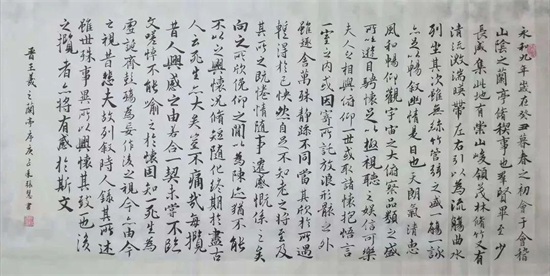 永和九年歲在癸丑暮春之初會于會稽
山陰之蘭亭脩稧事也羣賢畢至少
長咸集此地有崇山峻領茂林脩竹又有
清流激湍暎帶左右引以為流觴曲水
列坐其次雖無絲竹管弦之盛一觴一詠
亦足以暢敘幽情是日也天朗氣清惠
風和暢仰觀宇宙之大俯察品類之盛
所以遊目騁懷足以極視聽之娛信可樂也
夫人之相與俯仰一世或取諸懷抱悟言
一室之内或因寄所託放浪形骸之外
雖趣舍萬殊靜躁不同當其欣於所遇
暫得於己快然自足不知老之將至及
其所之既惓情隨事遷感慨係之矣
向之所欣俛仰之閒以為陳迹猶不能
不以之興懷況脩短隨化終期於盡古
人云死生亦大矣豈不痛哉每攬
昔人興感之由若合一契未嘗不臨
文嗟悼不能喻之於懷固知一死生為
虛誕齊彭殤為妄作後之視今亦由今
之視昔悲夫故列敘時人錄其所述
雖世殊事異所以興懷其致一也後
之攬者亦將有感於斯文
晉王羲之蘭亭序庚子 書